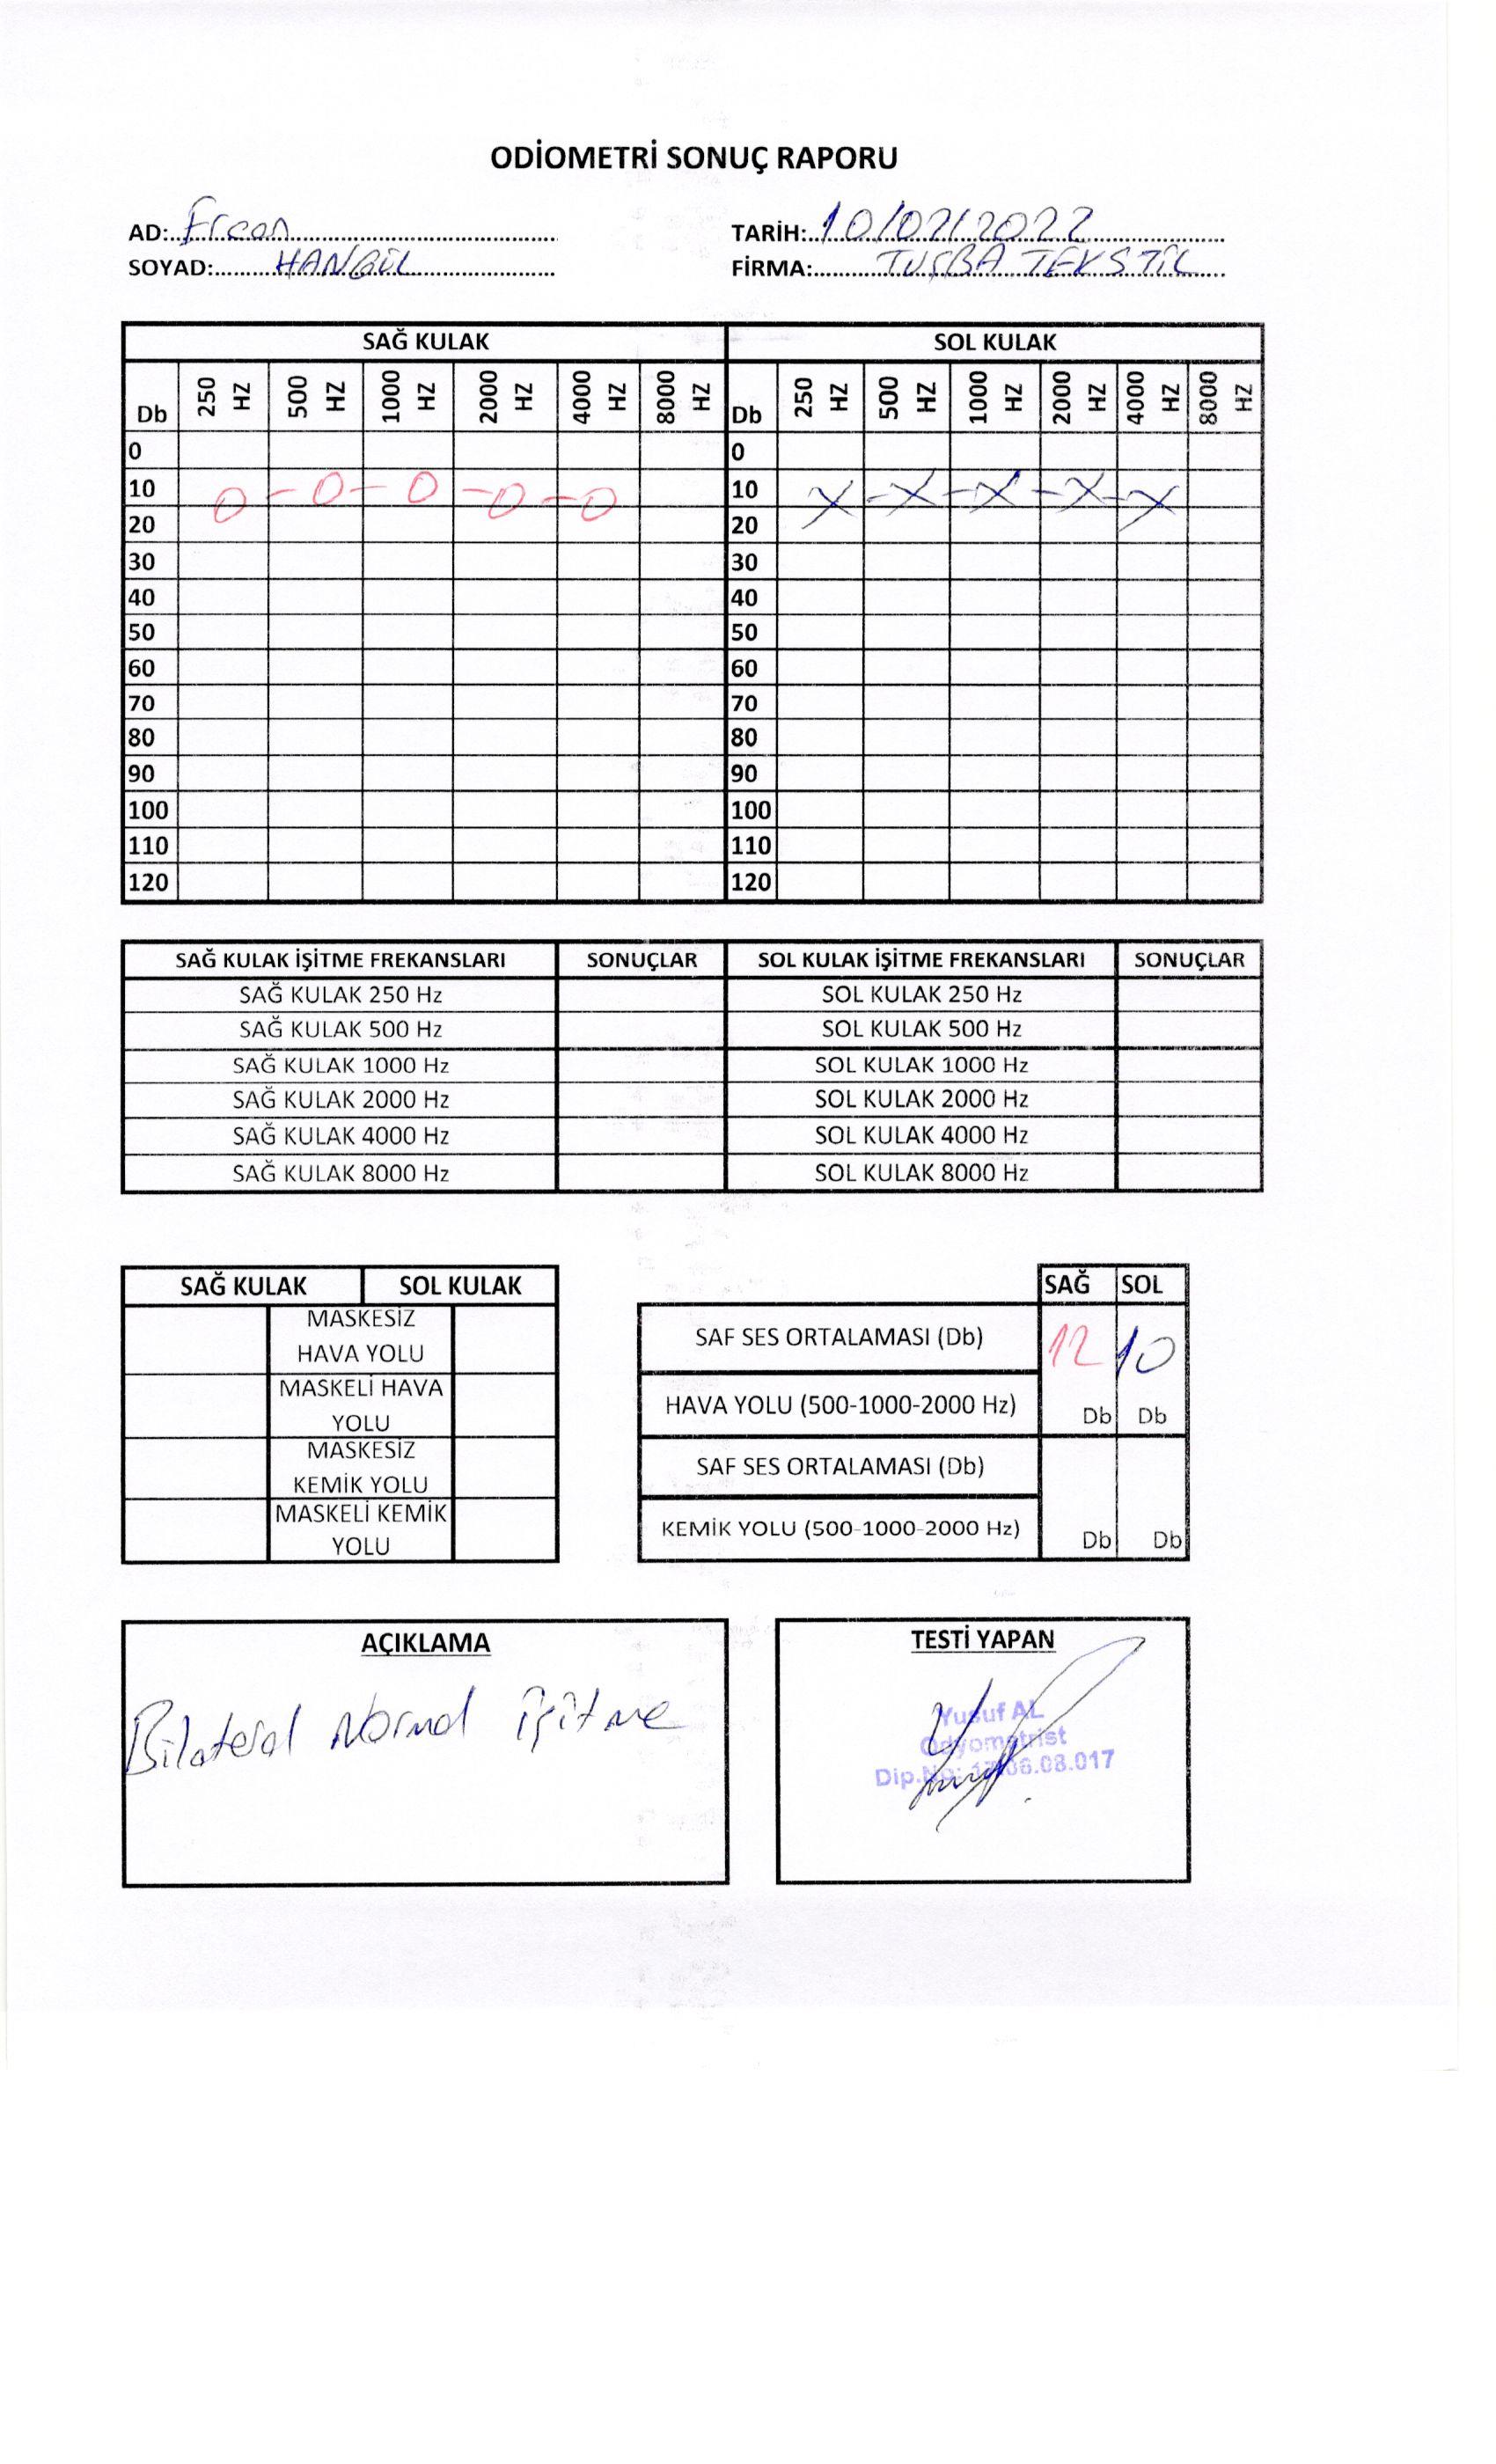 ODİOMETRİ SONUÇ RAPORU
AD: Ercan TARİH: 10/02/2022
SOYAD: HANGÜL FİRMA: TUŞBA TEKSTİL
SAĞ KULAK SOL KULAK
Db 250 HZ 500 HZ 1000 HZ 2000 HZ 4000 HZ 8000 HZ Db 250 HZ 500 HZ 1000 HZ 2000 HZ 4000 HZ 8000 HZ
0 0
10 O - O - O - O - O 10 X - X - X - X - X
20 20
30 30
40 40
50 50
60 60
70 70
80 80
90 90
100 100
110 110
120 120
SAĞ KULAK İŞİTME FREKANSLARI SONUÇLAR SOL KULAK İŞİTME FREKANSLARI SONUÇLAR
SAĞ KULAK 250 Hz SOL KULAK 250 Hz
SAĞ KULAK 500 Hz SOL KULAK 500 Hz
SAĞ KULAK 1000 Hz SOL KULAK 1000 Hz
SAĞ KULAK 2000 Hz SOL KULAK 2000 Hz
SAĞ KULAK 4000 Hz SOL KULAK 4000 Hz
SAĞ KULAK 8000 Hz SOL KULAK 8000 Hz
SAĞ KULAK SOL KULAK
MASKESİZ
HAVA YOLU
MASKELİ HAVA
YOLU
MASKESİZ
KEMİK YOLU
MASKELİ KEMİK
YOLU
SAĞ SOL
SAF SES ORTALAMASI (Db) 12 10
HAVA YOLU (500-1000-2000 Hz) Db Db
SAF SES ORTALAMASI (Db)
KEMİK YOLU (500-1000-2000 Hz) Db Db
AÇIKLAMA
Bilateral Normal işitme
TESTİ YAPAN
Yusuf AL
Odyometrist
Dip.No: